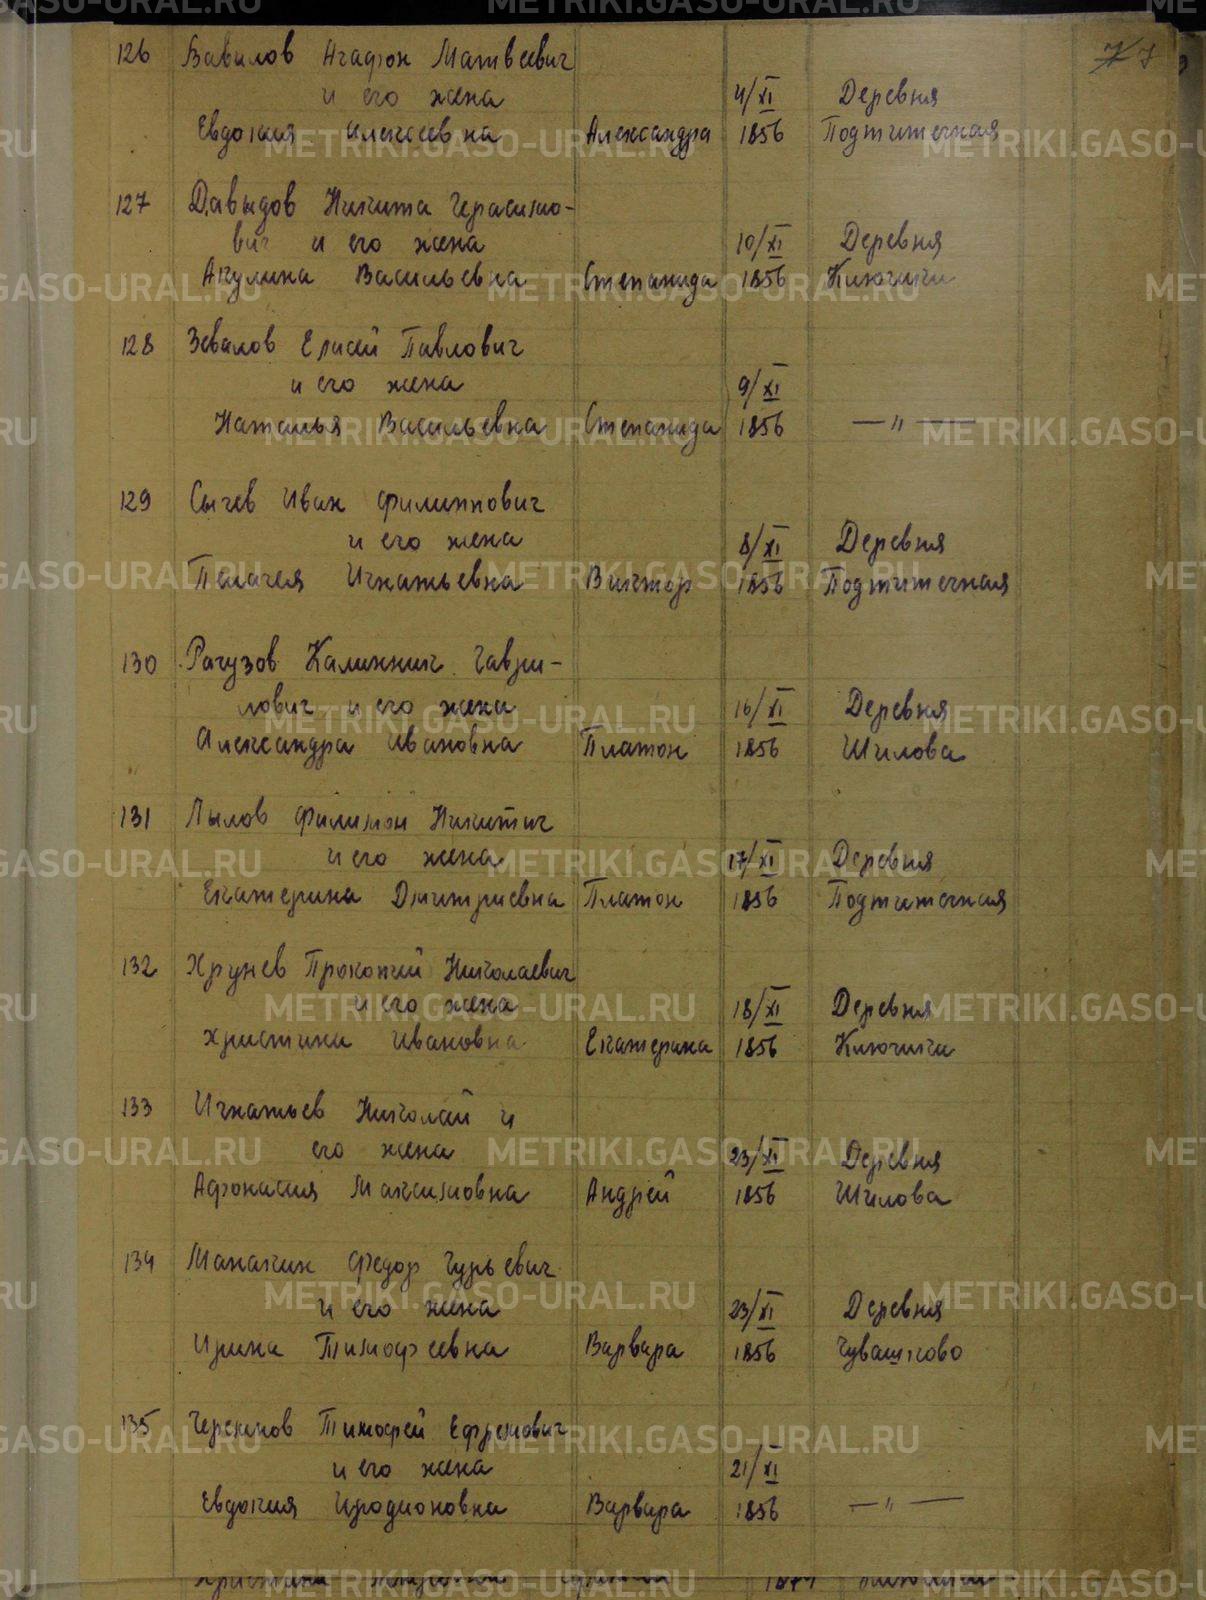 7
126 Вавилов Агафон Матвеевич
и его жена 4/XI Деревня
Евдокия Алексеевна Александра 1856 Подтитечная
127 Давыдов Никита Герасимо-
вич и его жена 10/XI Деревня
Акулина Васильевна Степанида 1856 Ключики
128 Зевалов Елисей Павлович
и его жена 9/XI
Наталья Васильевна Степанида 1856 — " —
129 Сычев Иван Филиппович
и его жена 8/XI Деревня
Пелагея Игнатьевна Виктор 1856 Подтитечная
130 Рагузов Калинник Гаври-
лович и его жена 16/XI Деревня
Александра Ивановна Платон 1856 Шилова
131 Лылов Филимон Никитич
и его жена 17/XI Деревня
Екатерина Дмитриевна Платон 1856 Подтитечная
132 Хрунев Прокопий Николаевич
и его жена 18/XI Деревня
Христина Ивановна Екатерина 1856 Ключики
133 Игнатьев Николай и
его жена 23/XI Деревня
Афонасия Максимовна Андрей 1856 Шилова
134 Манакин Федор Гурьевич
и его жена 23/XI Деревня
Ирина Тимофеевна Варвара 1856 Чувашково
135 Черепнов Тимофей Ефремович
и его жена 21/XI
Евдокия Иродионовна Варвара 1856 — " —
METRIKI.GASO-URAL.RU